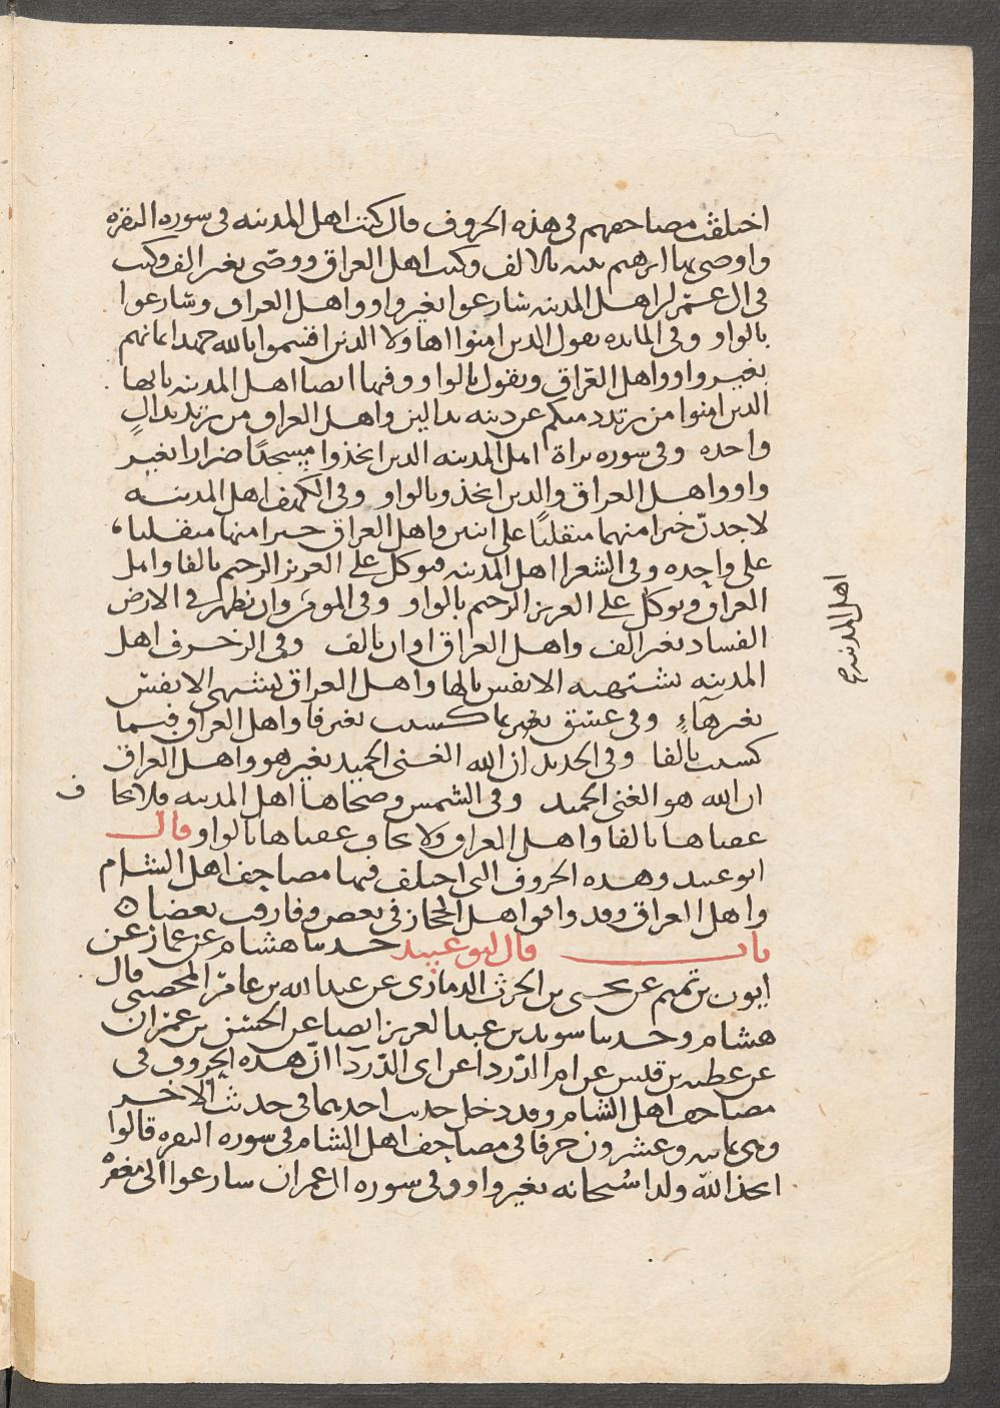 اختلفت مصاحفهم في هذه الحروف قال كتب اهل المدينه في سوره البقره
واوصى بها ابرهيم بنيه بالالف وكتب اهل العراق ووصّى بغير الف وكتب
في ال عمرن اهل المدينه سارعوا بغير واو واهل العراق وسارعوا
بالواو وفي المايده يقول الذين امنوا اهاولا الذين اقسموا بالله جهد ايمانهم
بغير واو واهل العراق ويقول بالواو وفيها ايضا اهل المدينه يايها
الذين امنوا من يرتدد منكم عن دينه بدالين واهل العراق من يرتد بدالٍ
واحده وفي سوره براة اهل المدينه الذين اتخذوا مسجدًا ضرارا بغير
واو واهل العراق والذين اتخذو بالواو وفي الكهف اهل المدينه
لاجدنّ خيرا منهما منقلبًا على اثنين واهل العراق خيرا منها منقلبا،
على واحده وفي الشعرا اهل المدينه فتوكل على العزيز الرحيم بالفا واهل
العراق وتوكل على العزيز الرحيم بالواو وفي المومن وان يظهر في الارض
الفساد بغير الف واهل العراق او ان بالف وفي الزخرف اهل
المدينه تشتهيه الانفس بالها واهل العراق تشتهي الانفس
بغير هآءٍ وفي عسق بما كسبت بغير فا واهل العراق فبما
كسبت بالفا وفي الحديد ان الله الغنى الحميد بغير هو واهل العراق
ان الله هو الغنى الحميد وفي الشمس وضحاها اهل المدينه فلا يخا ف
عقباها بالفا واهل العراق ولا يخاف عقباها بالواو قال
ابو عبيد وهذه الحروف التي اختلف فيها مصاحف اهل الشام
واهل العراق وقد وافق اهل الحجاز في بعض وفارقت بعضا ن
باب قال ابو عبيد حدثنا هشام بن عمار عن
ايوب بن تميم عن يحيى بن الحرث الذماري عن عبد الله بن عامر اليحصبى قال
هشام وحدثنا سويد بن عبد العزيز ايضا عن الحسن بن عمران
عن عطيه بن قيس عن ام الدّردا عن ابى الدّردآ ان هذه الحروف في
مصاحف اهل الشام وقد دخل حديث احديهما في حديث الاخر
وهى ثمانيه وعشرون حرفا في مصاحف اهل الشام في سوره البقره قالوا
اتخذ الله ولدا سُبحانه بغير واو وفي سوره ال عمران سارعوا الى مغفرة
اهل المدينه